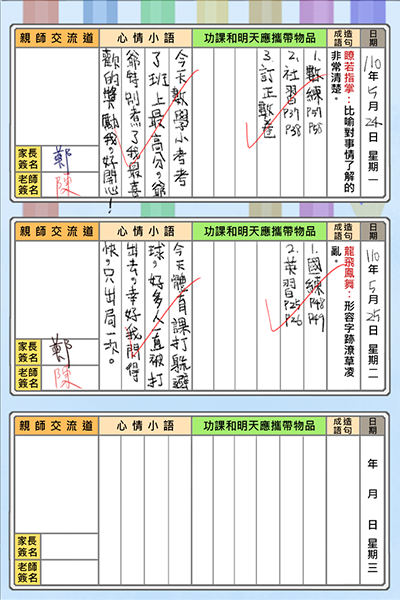 日期
110年5月24日 星期一
成語造句
瞭若指掌：比喻對事情了解的
非常清楚。
功課和明天應攜帶物品
1.數練P37 P38
2.社習P37 P38
3.訂正數卷
心情小語
今天數學小考考
了班上最高分，爺
爺特別煮了我最喜
歡的獎勵我。好開心！
親師交流道
家長簽名
鄭
老師簽名
陳
日期
110年5月25日 星期二
成語造句
龍飛鳳舞：形容字跡潦草凌
亂。
功課和明天應攜帶物品
1.國練P48 P49
2.英習P25 P26
心情小語
今天體育課打躲避
球，好多人一直被打
出去。幸好我閃得
快，只出局一次。
親師交流道
家長簽名
鄭
老師簽名
陳
日期
年 月 日 星期三
成語造句
功課和明天應攜帶物品
心情小語
親師交流道
家長簽名
老師簽名